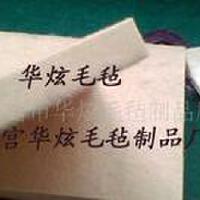 华炫毛毡
宫市华炫毛毡制品厂
宫华炫毛毡制品厂